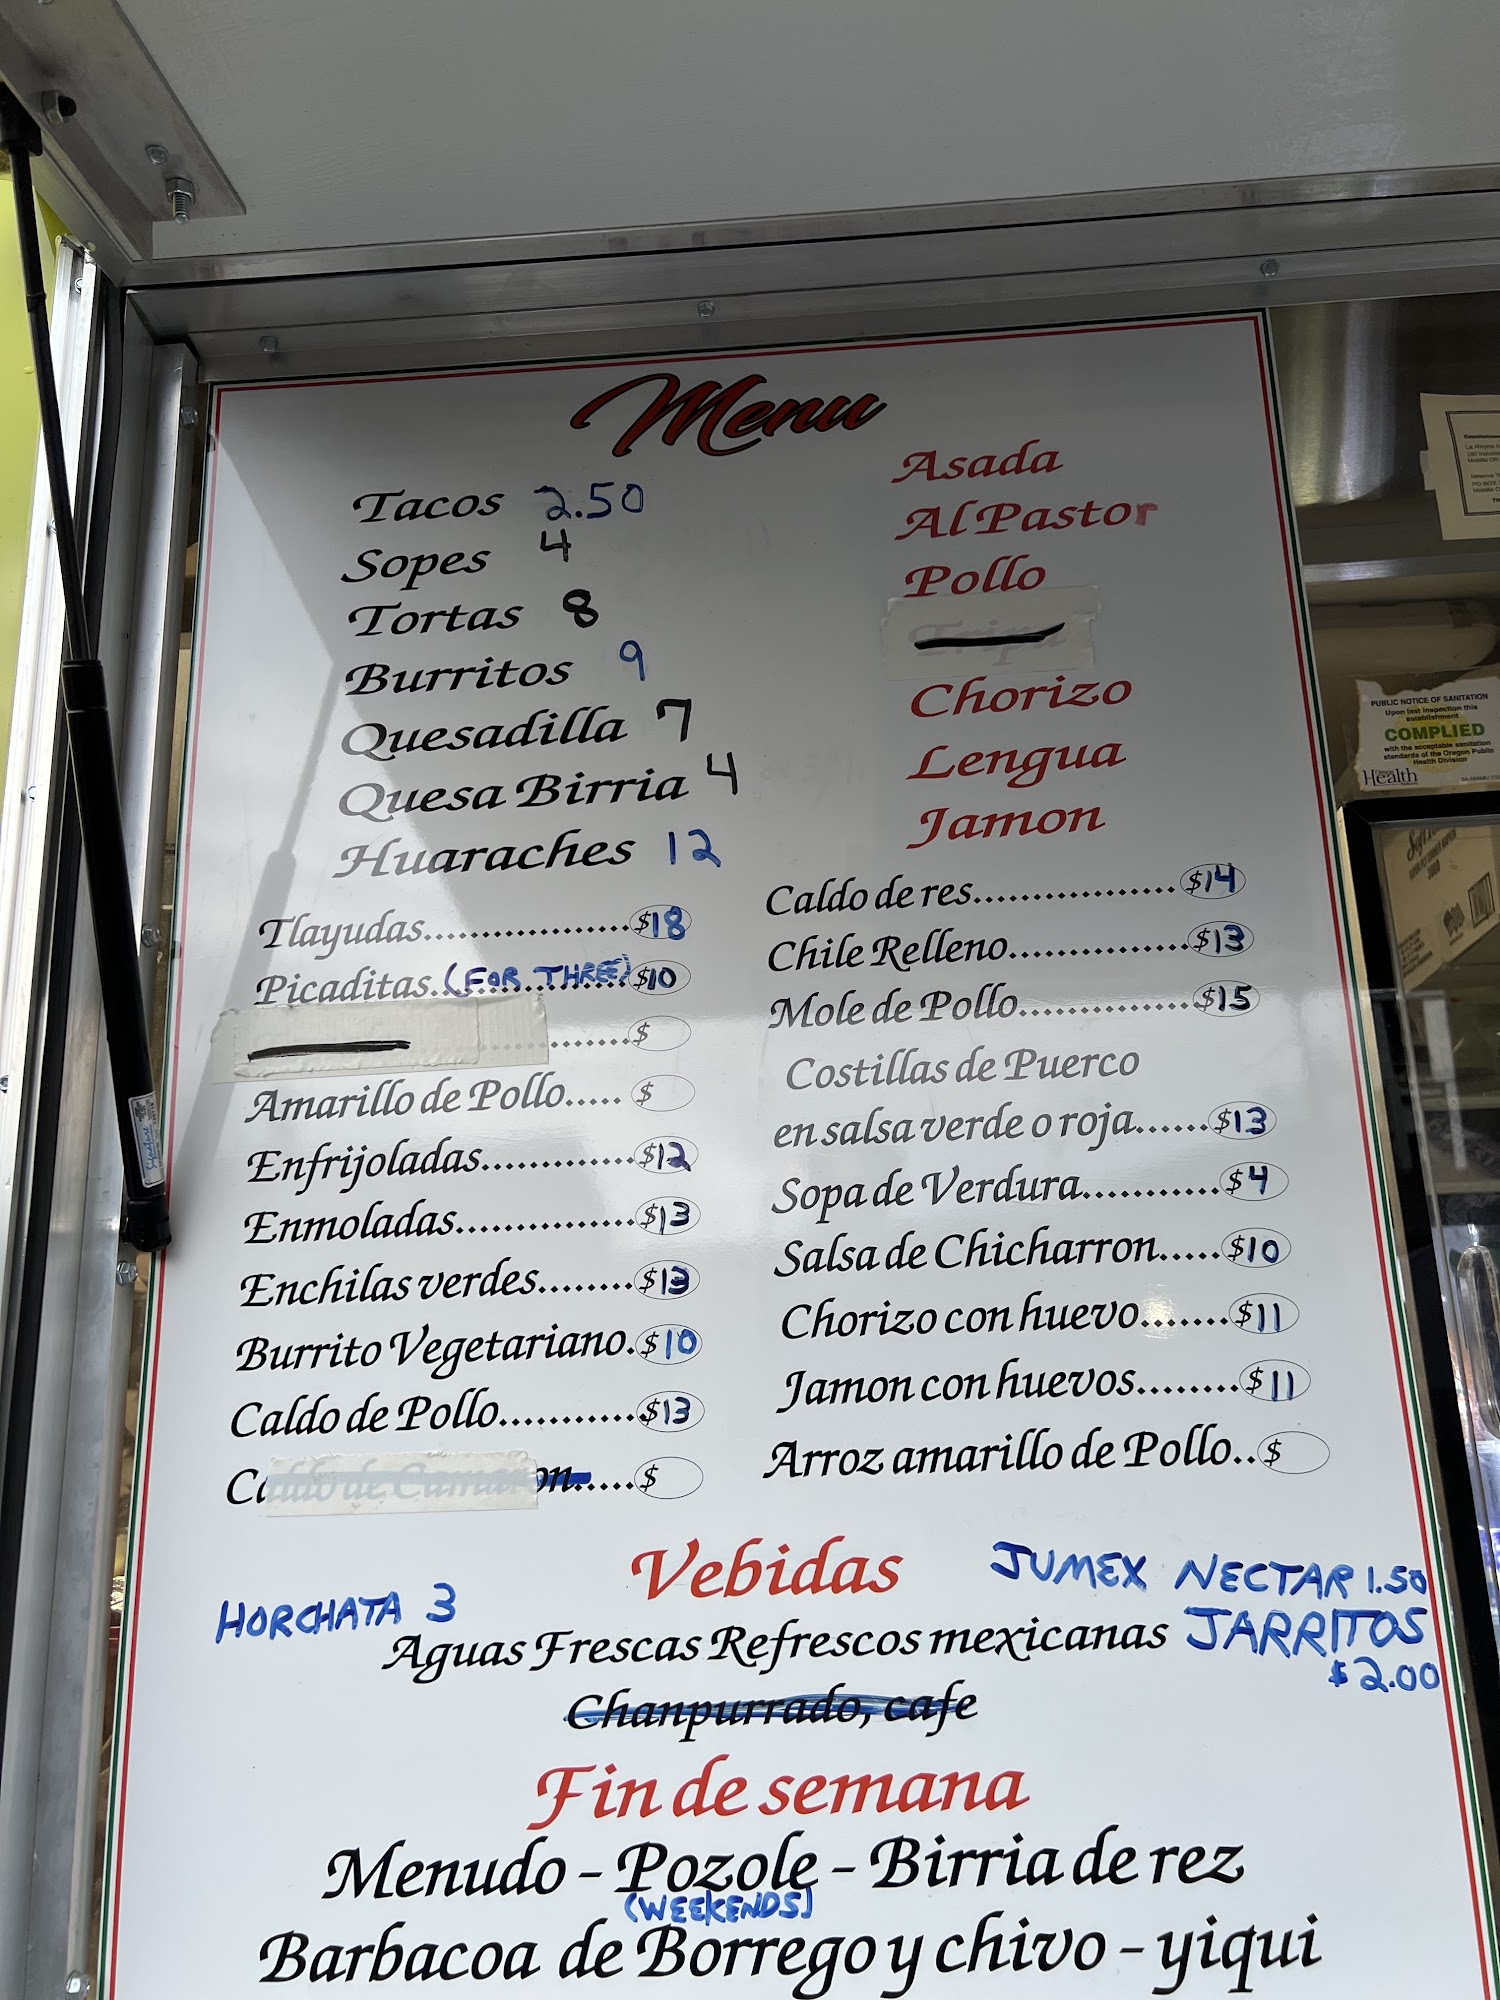 Menu
Tacos 2.50
Sopes 4
Tortas 8
Burritos 9
Quesadilla 7
Quesa Birria 4
Huaraches 12
Asada
Al Pastor
Pollo
Tripa
Chorizo
Lengua
Jamon
Tlayudas..................$18
Picaditas.(FOR THREE)$10
.......$
Amarillo de Pollo.....$
Enfrijoladas.............$12
Enmoladas...............$13
Enchilas verdes........$13
Burrito Vegetariano.$10
Caldo de Pollo...........$13
Caldo de Camaron.....$
Caldo de res.................$14
Chile Relleno...............$13
Mole de Pollo...............$15
Costillas de Puerco
en salsa verde o roja......$13
Sopa de Verdura...........$4
Salsa de Chicharron.....$10
Chorizo con huevo.......$11
Jamon con huevos........$11
Arroz amarillo de Pollo..$
Vebidas
JUMEX NECTAR 1.50
HORCHATA 3
Aguas Frescas Refrescos mexicanas JARRITOS
$2.00
Chanpurrado, cafe
Fin de semana
Menudo - Pozole - Birria de rez
(WEEKENDS)
Barbacoa de Borrego y chivo - yiqui
PUBLIC NOTICE OF SANITATION
Upon last inspection this
establishment
COMPLIED
with the acceptable sanitation
standards of the Oregon Public
Health Division
Health